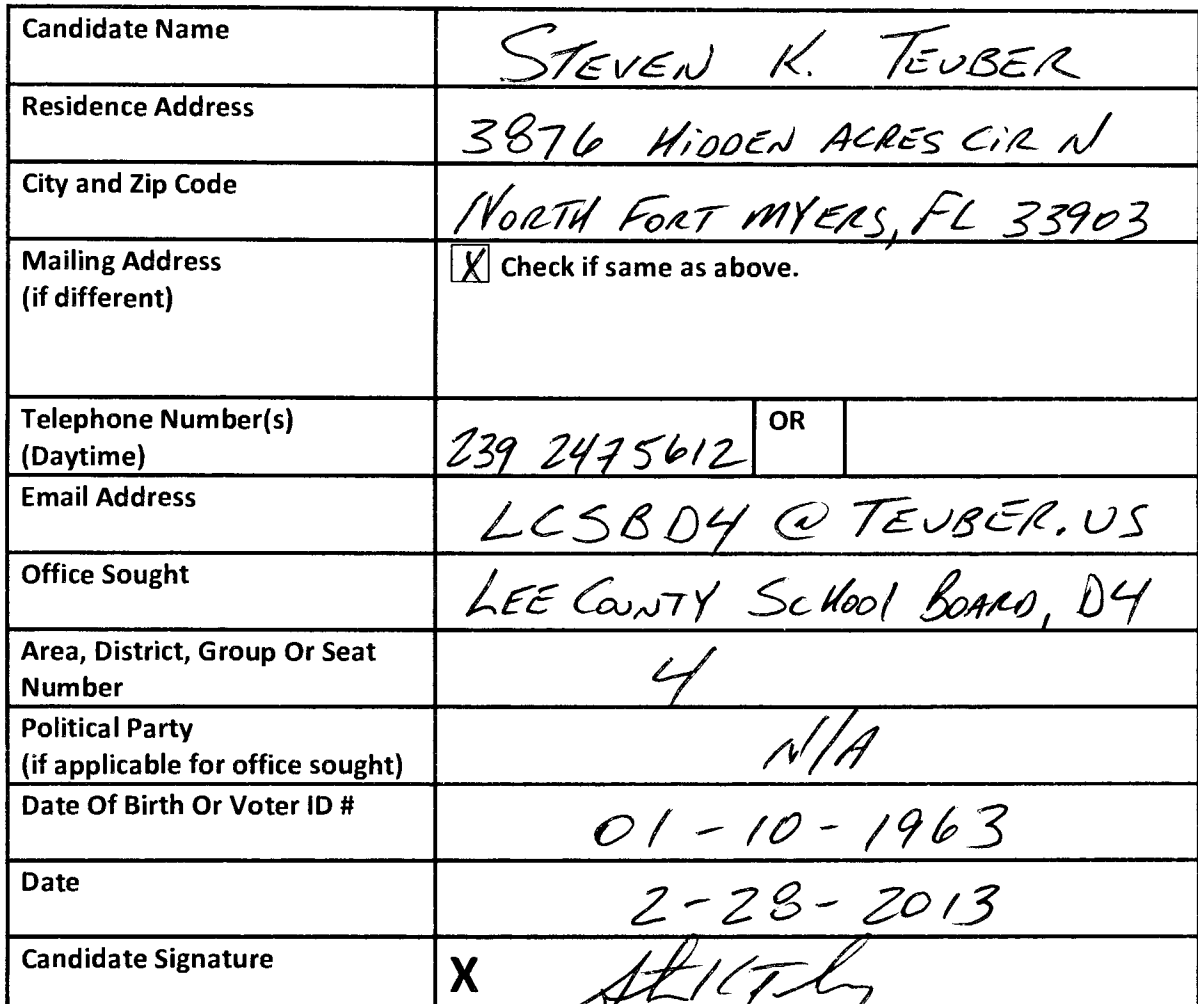 Candidate Name STEVEN K. TEUBER
Residence Address 3876 HIDDEN ACRES CIR N
City and Zip Code NORTH FORT MYERS, FL 33903
Mailing Address X Check if same as above.
(if different)
Telephone Number(s) OR
(Daytime) 239 2475612
Email Address LCSBD4 @ TEUBER.US
Office Sought LEE COUNTY SCHOOl BOARD, D4
Area, District, Group Or Seat 4
Number
Political Party N/A
(if applicable for office sought)
Date Of Birth Or Voter ID # 01-10-1963
Date 2-28-2013
Candidate Signature X